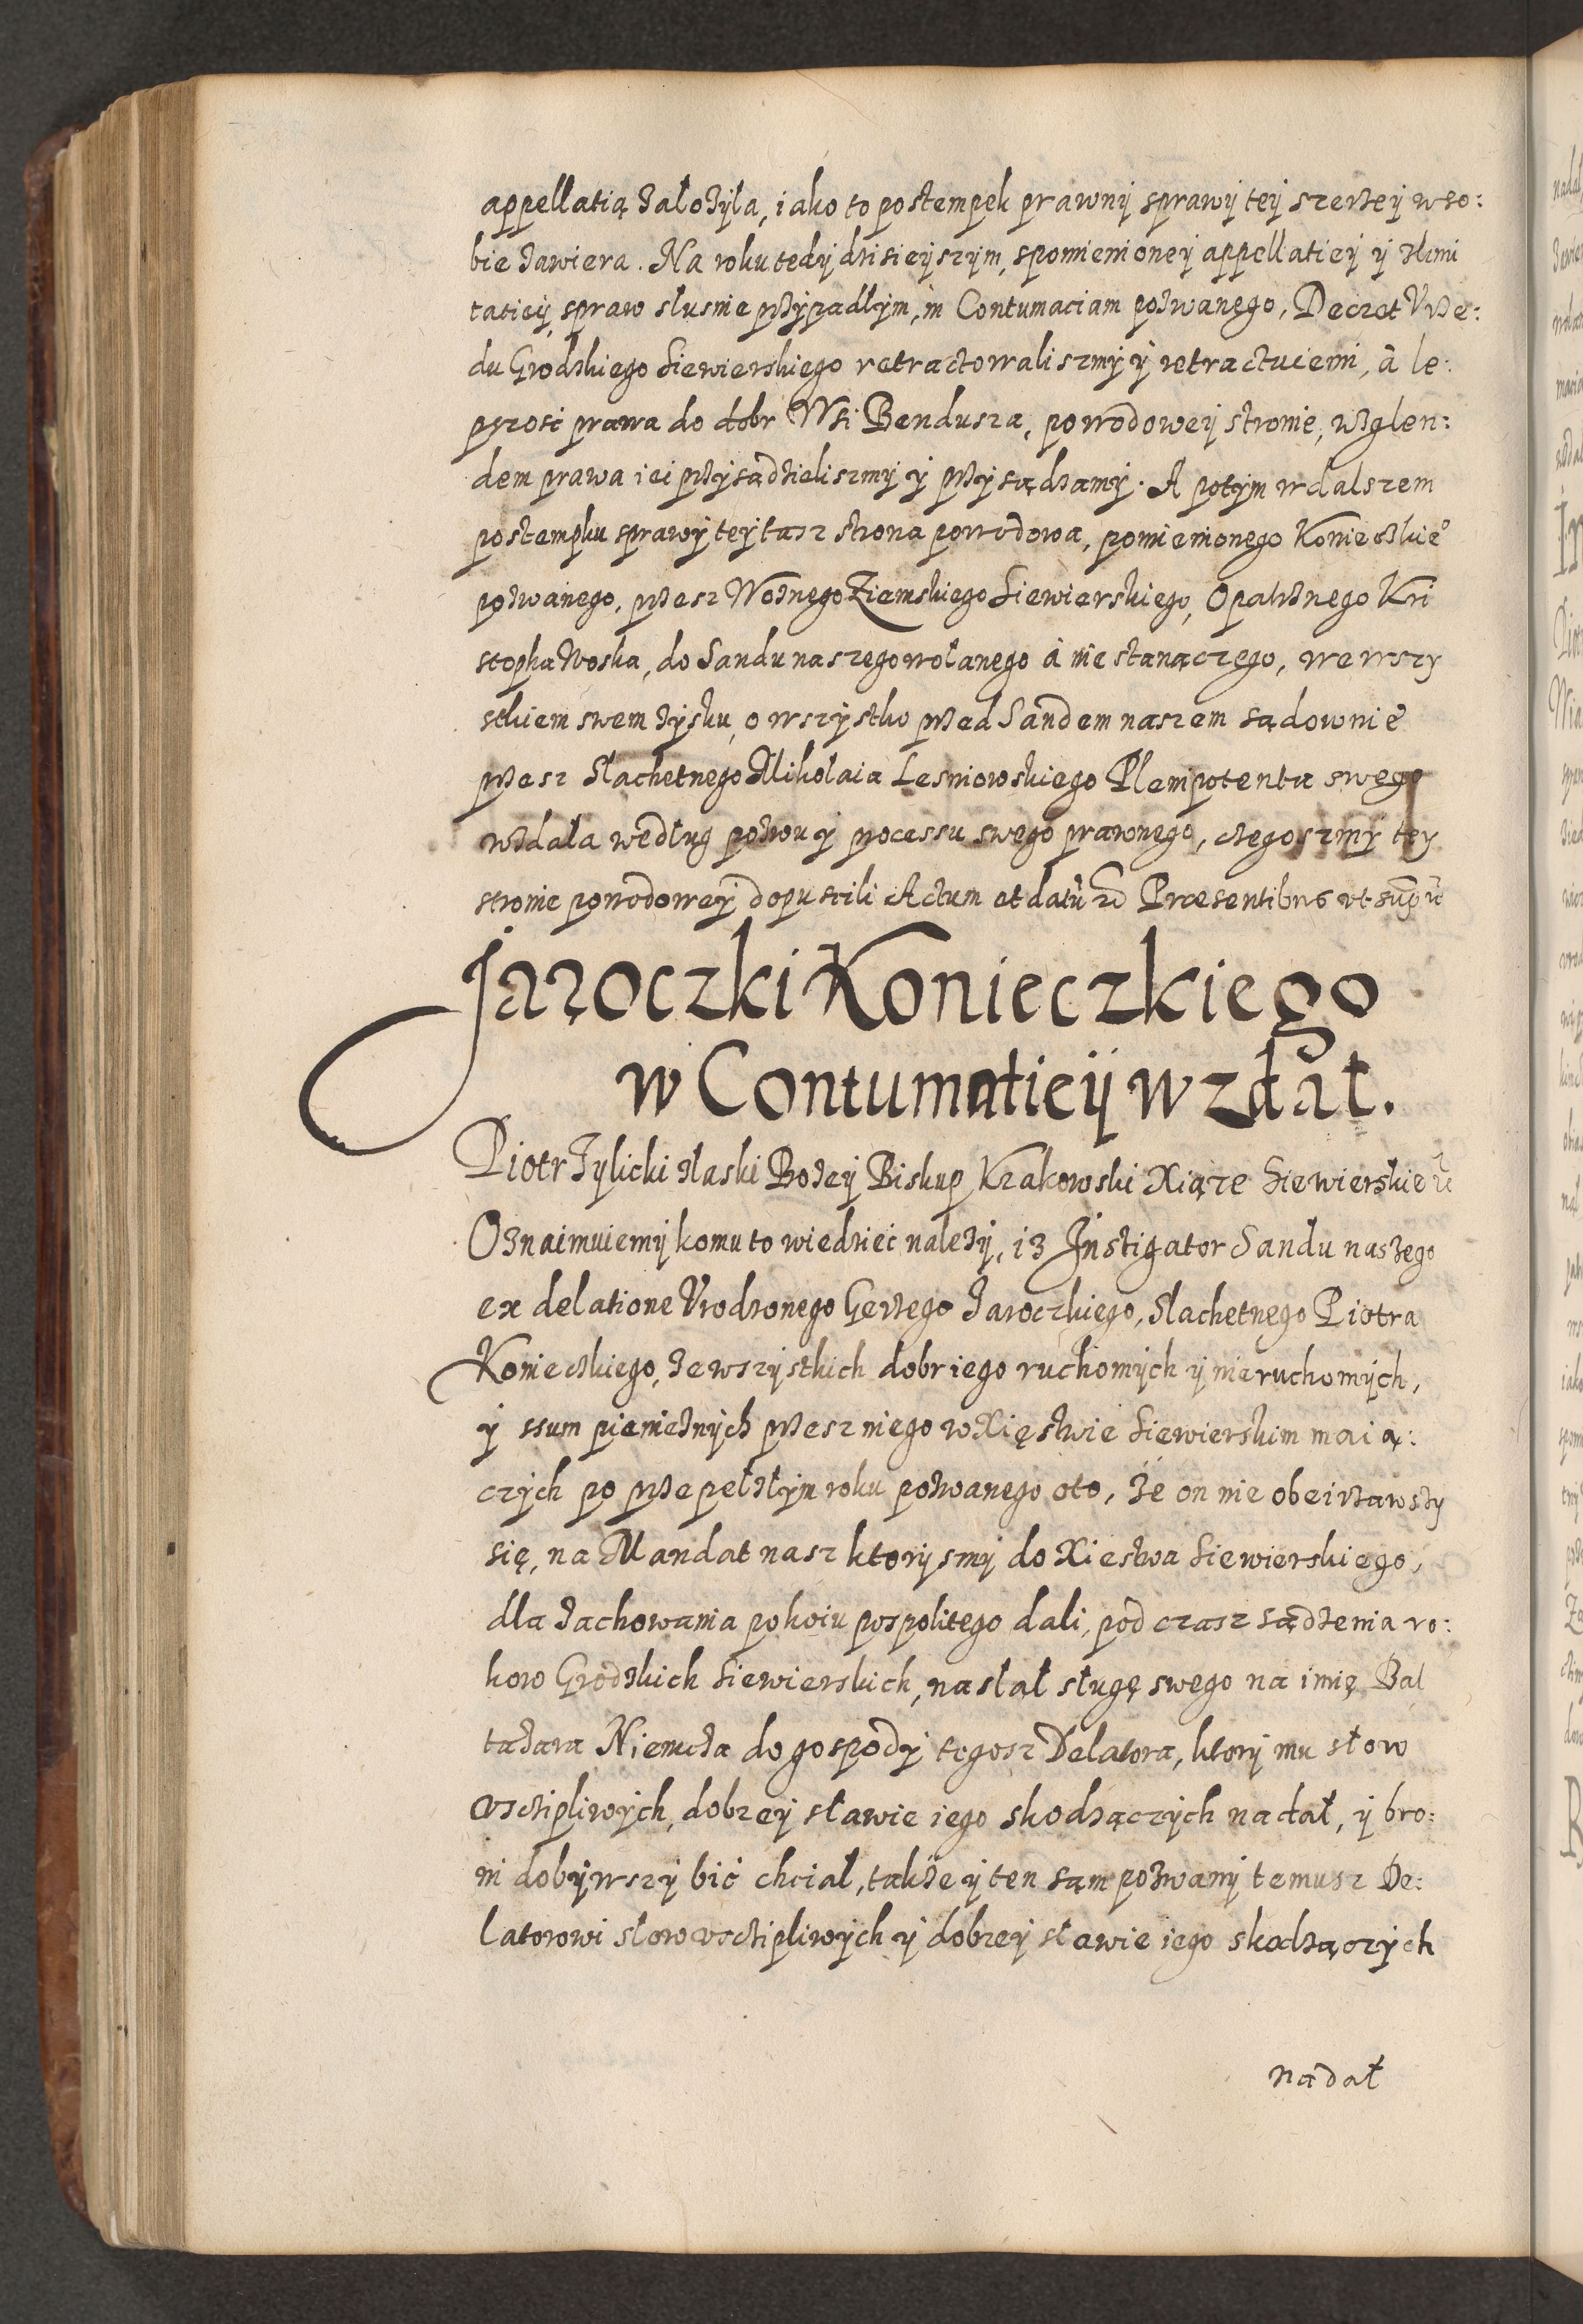 appellatią założyła, iako to postempek prawny sprawy tey szerzey w so:
bie zawiera. Na roku tedy dzisieyszym, spomienioney appellatiey y zlimi
tatiey, spraw slusnie przypadłym, in Contumaciam pozwanego, Decret Vrze:
du Grodzkiego Siewierskiego retractowaliszmy y retractuiemi, à le:
pszosc prawa do dobr Wsi Bendusza, powodowey stronie, wzglen:
dem prawa iei przysądzieliszmy y przysądzamy. A potym w dalszem
postempku sprawy tey tasz strona powodowa, pomienionego Konieczkie°
pozwanego, przesz Woznego Ziemskiego Siewierskiego, Opatrznego Kri
stopha Woska, do Sandu naszego wołanego à nie stanączego, we wszy
stkiem swem zysku, o wszystko przed Sandem naszem sądownie
przesz Slachetnego Mikołaia Lesniowskiego Plempotenta swego
wzdała według pozwu y processu swego prawnego, czegoszmy tey
stronie powodowey dopuscili Actum et datũ Præsentibus vt supra
Jaroczki Konieczkiego
w Contumatieÿ wzdał.
Piotr Tylicki złaski Bozey Biskup Krakowski Xiąze Siewierskie
Oznaimuiemy komu to wiedziec nalezy, iz Instigator Sandu naszego
ex delatione Vrodzonego Gerzego Jaroczkiego, Slachetnego Piotra
Konieczkiego, ze wszystkich dobr iego ruchomych y nieruchomych,
y ssum pienieznych przesz niego w Xięstwie Siewierskim maią:
czych po przepełzłym roku pozwanego oto, ze on nie obeirzawszy
się, na Mandat nasz ktorysmy do Xiestwa Siewierskiego,
dla zachowania pokoiu pospolitego dali, pod czasz sądzenia ro:
kow Grodzkich Siewierskich, nasłał sługę swego na imię Bal
tazara Niemcza do gospody tegosz Delatora, ktory mu słow
vsctipliwych, dobrey sławie iego skodzączych nadał, y bro:
ni dobywszy bić chciał, takze y ten sam pozwany temusz De:
latorowi slow vsctipliwych y dobrey sławie iego skodzączych
nadał